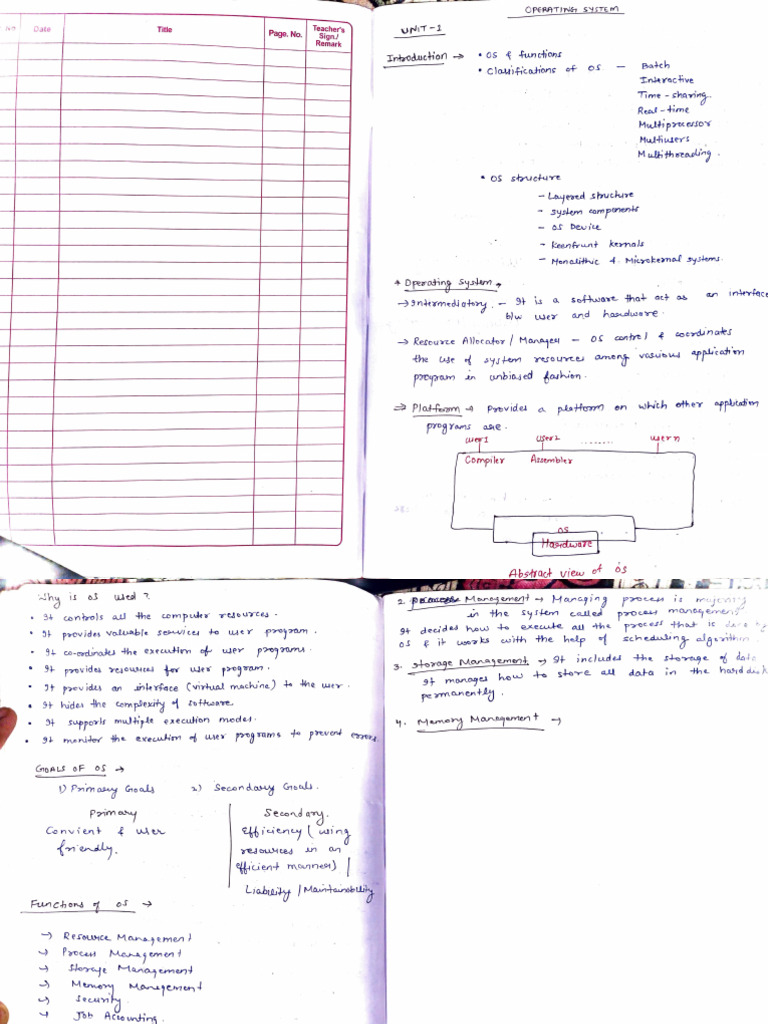 No
Date
Title
Page. No.
Teacher's
Sign./
Remark
OPERATING SYSTEM
UNIT-1
Introduction → • OS & functions
• Classifications of OS — Batch
Interactive
Time-sharing.
Real-time
Multiprocessor
Multiusers
Multithreading.
• OS structure
- Layered structure
- System components
- OS Device
- Keenfrunt kernals
- Monolithic & Microkernal systems.
* Operating System.
→ Intermediatory. - It is a software that act as an interface
b/w user and hardware.
→ Resource Allocator / Manager - OS control & coordinates
the use of system resources among various application
program in unbiased fashion.
⇒ Platform → Provides a platform on which other application
programs are.
user1 user2 ........ user n
Compiler Assembler
OS
Hardware
Abstract view of os
Why is os used ?
• It controls all the computer resources.
• It provides valuable services to user program.
• It co-ordinates the execution of user programs.
• It provides resources for user program.
• It provides an interface (virtual machine) to the user.
• It hides the complexity of software.
• It supports multiple execution modes.
• It monitor the execution of user programs to prevent errors.
GOALS OF OS →
1) Primary Goals 2) Secondary Goals.
Primary
Convient & user
friendly.
Secondary.
Efficiency ( using
resources in an
efficient manner) |
Liability / Maintainability
Functions of OS →
→ Resource Management
→ Process Management
→ Storage Management
→ Memory Management
→ Security.
→ Job Accounting.
2. Process Management → Managing process is majorly
in the system called process management
It decides how to execute all the process that is done by
OS & it works with the help of scheduling algorithm.
3. Storage Management → It includes the storage of data
It manages how to store all data in the harddisk
permanently.
4. Memory Management →